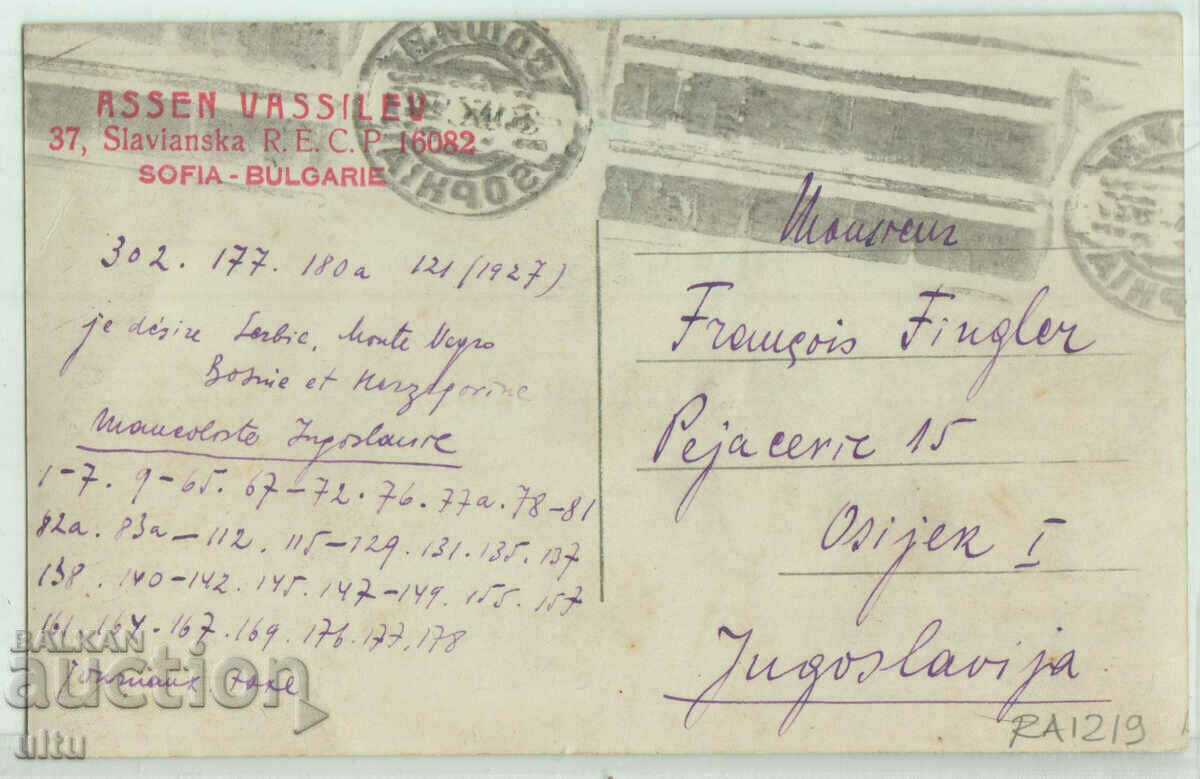 ASSEN VASSILEV
37, Slavianska R. E. C. P. 16082
SOFIA - BULGARIE
SOPHIA
302. 177. 180a 121 (1927)
je désire Serbie, Monte Negro
Bosnie et Herzegovine
Mancoliste Jugoslavie
1-7. 9-65. 67-72. 76. 77a. 78-81
82a. 83a-112. 115-129. 131. 135. 137
138. 140-142. 145. 147-149. 155. 157
161. 164. 167. 169. 176. 177. 178
Monsieur
François Fingler
Pejacevic 15
Osijek I
Jugoslavija
RA1219
BALKAN
auction
ultu